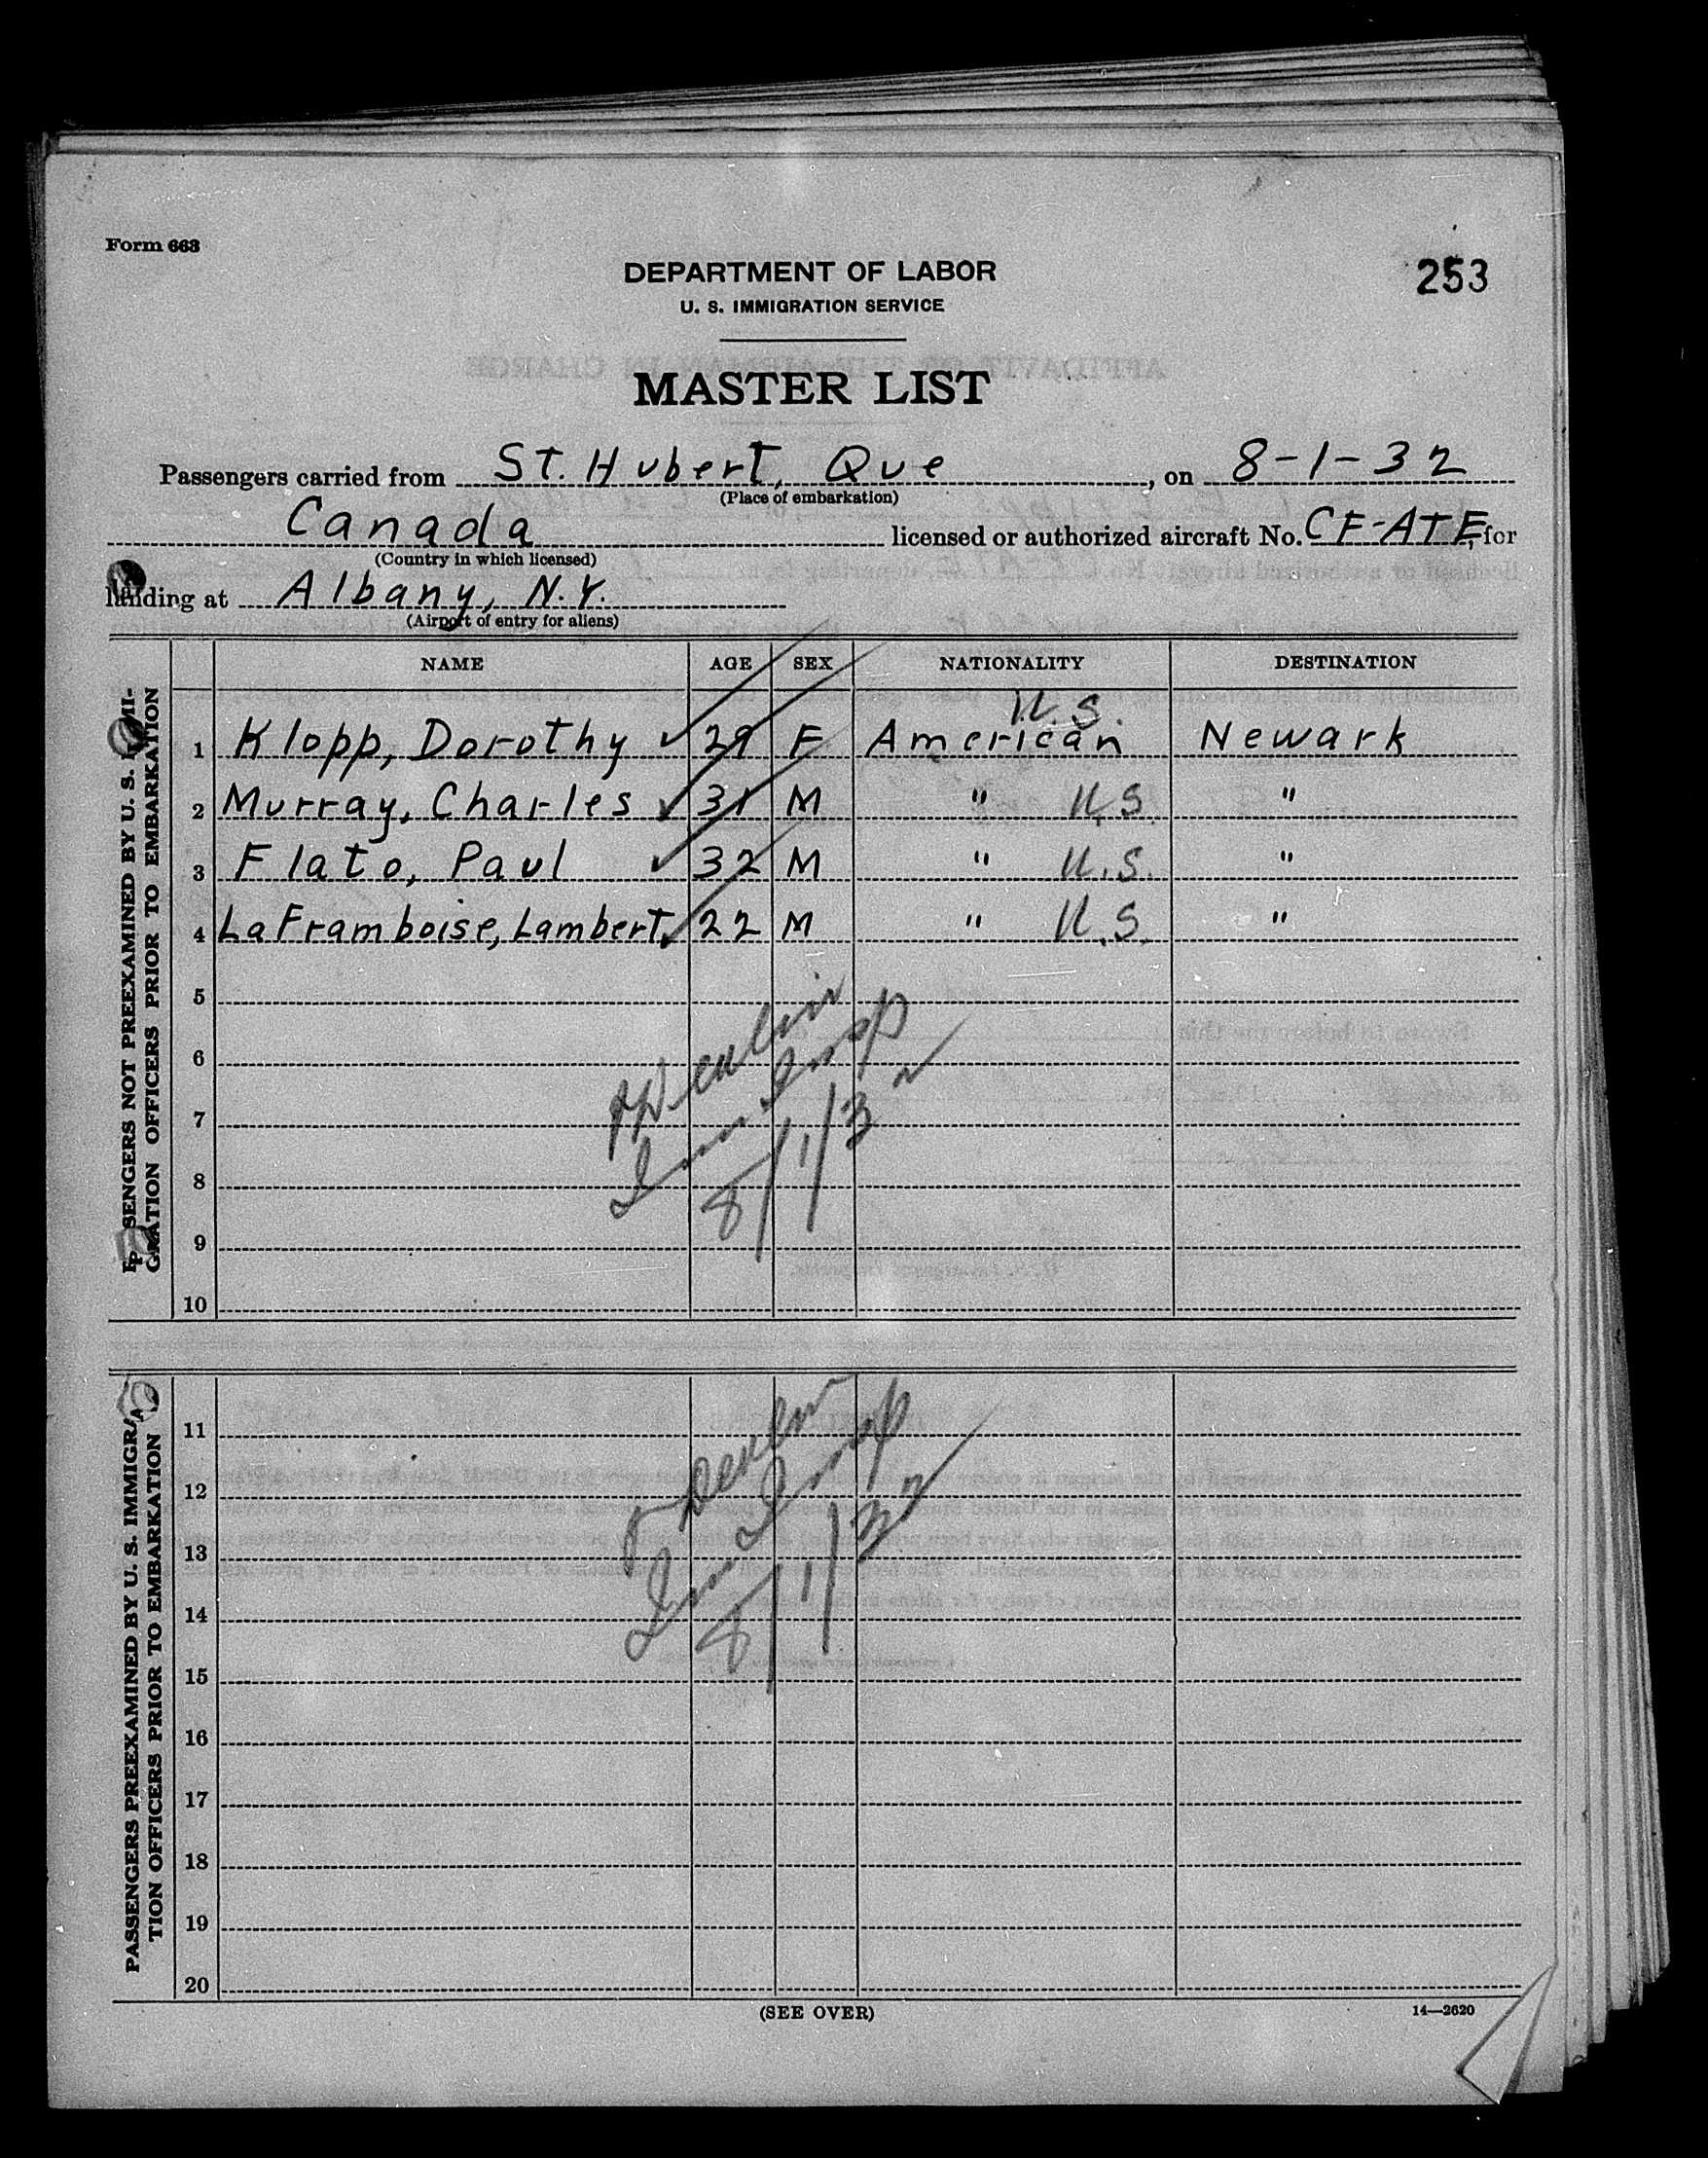 Form 663
DEPARTMENT OF LABOR
U. S. IMMIGRATION SERVICE
253
MASTER LIST
Passengers carried from St. Hubert, Que, on 8-1-32
(Place of embarkation)
Canada licensed or authorized aircraft No. CF-ATE, for
(Country in which licensed)
landing at Albany, N.Y.
(Airport of entry for aliens)
NAME AGE SEX NATIONALITY DESTINATION
U.S.
1 Klopp, Dorothy ✓ 29 F American Newark
2 Murray, Charles ✓ 31 M " U.S. "
3 Flato, Paul ✓ 32 M " U.S. "
4 LaFramboise, Lambert ✓ 22 M " U.S. "
5
6
7
8
9
10
Imm Insp
8/1/32
PASSENGERS NOT PREEXAMINED BY U. S. IMMI-
GRATION OFFICERS PRIOR TO EMBARKATION
11
12
13
14
15
16
17
18
19
20
Imm Insp
8/1/32
PASSENGERS PREEXAMINED BY U. S. IMMIGRA-
TION OFFICERS PRIOR TO EMBARKATION
(SEE OVER)
14—2620